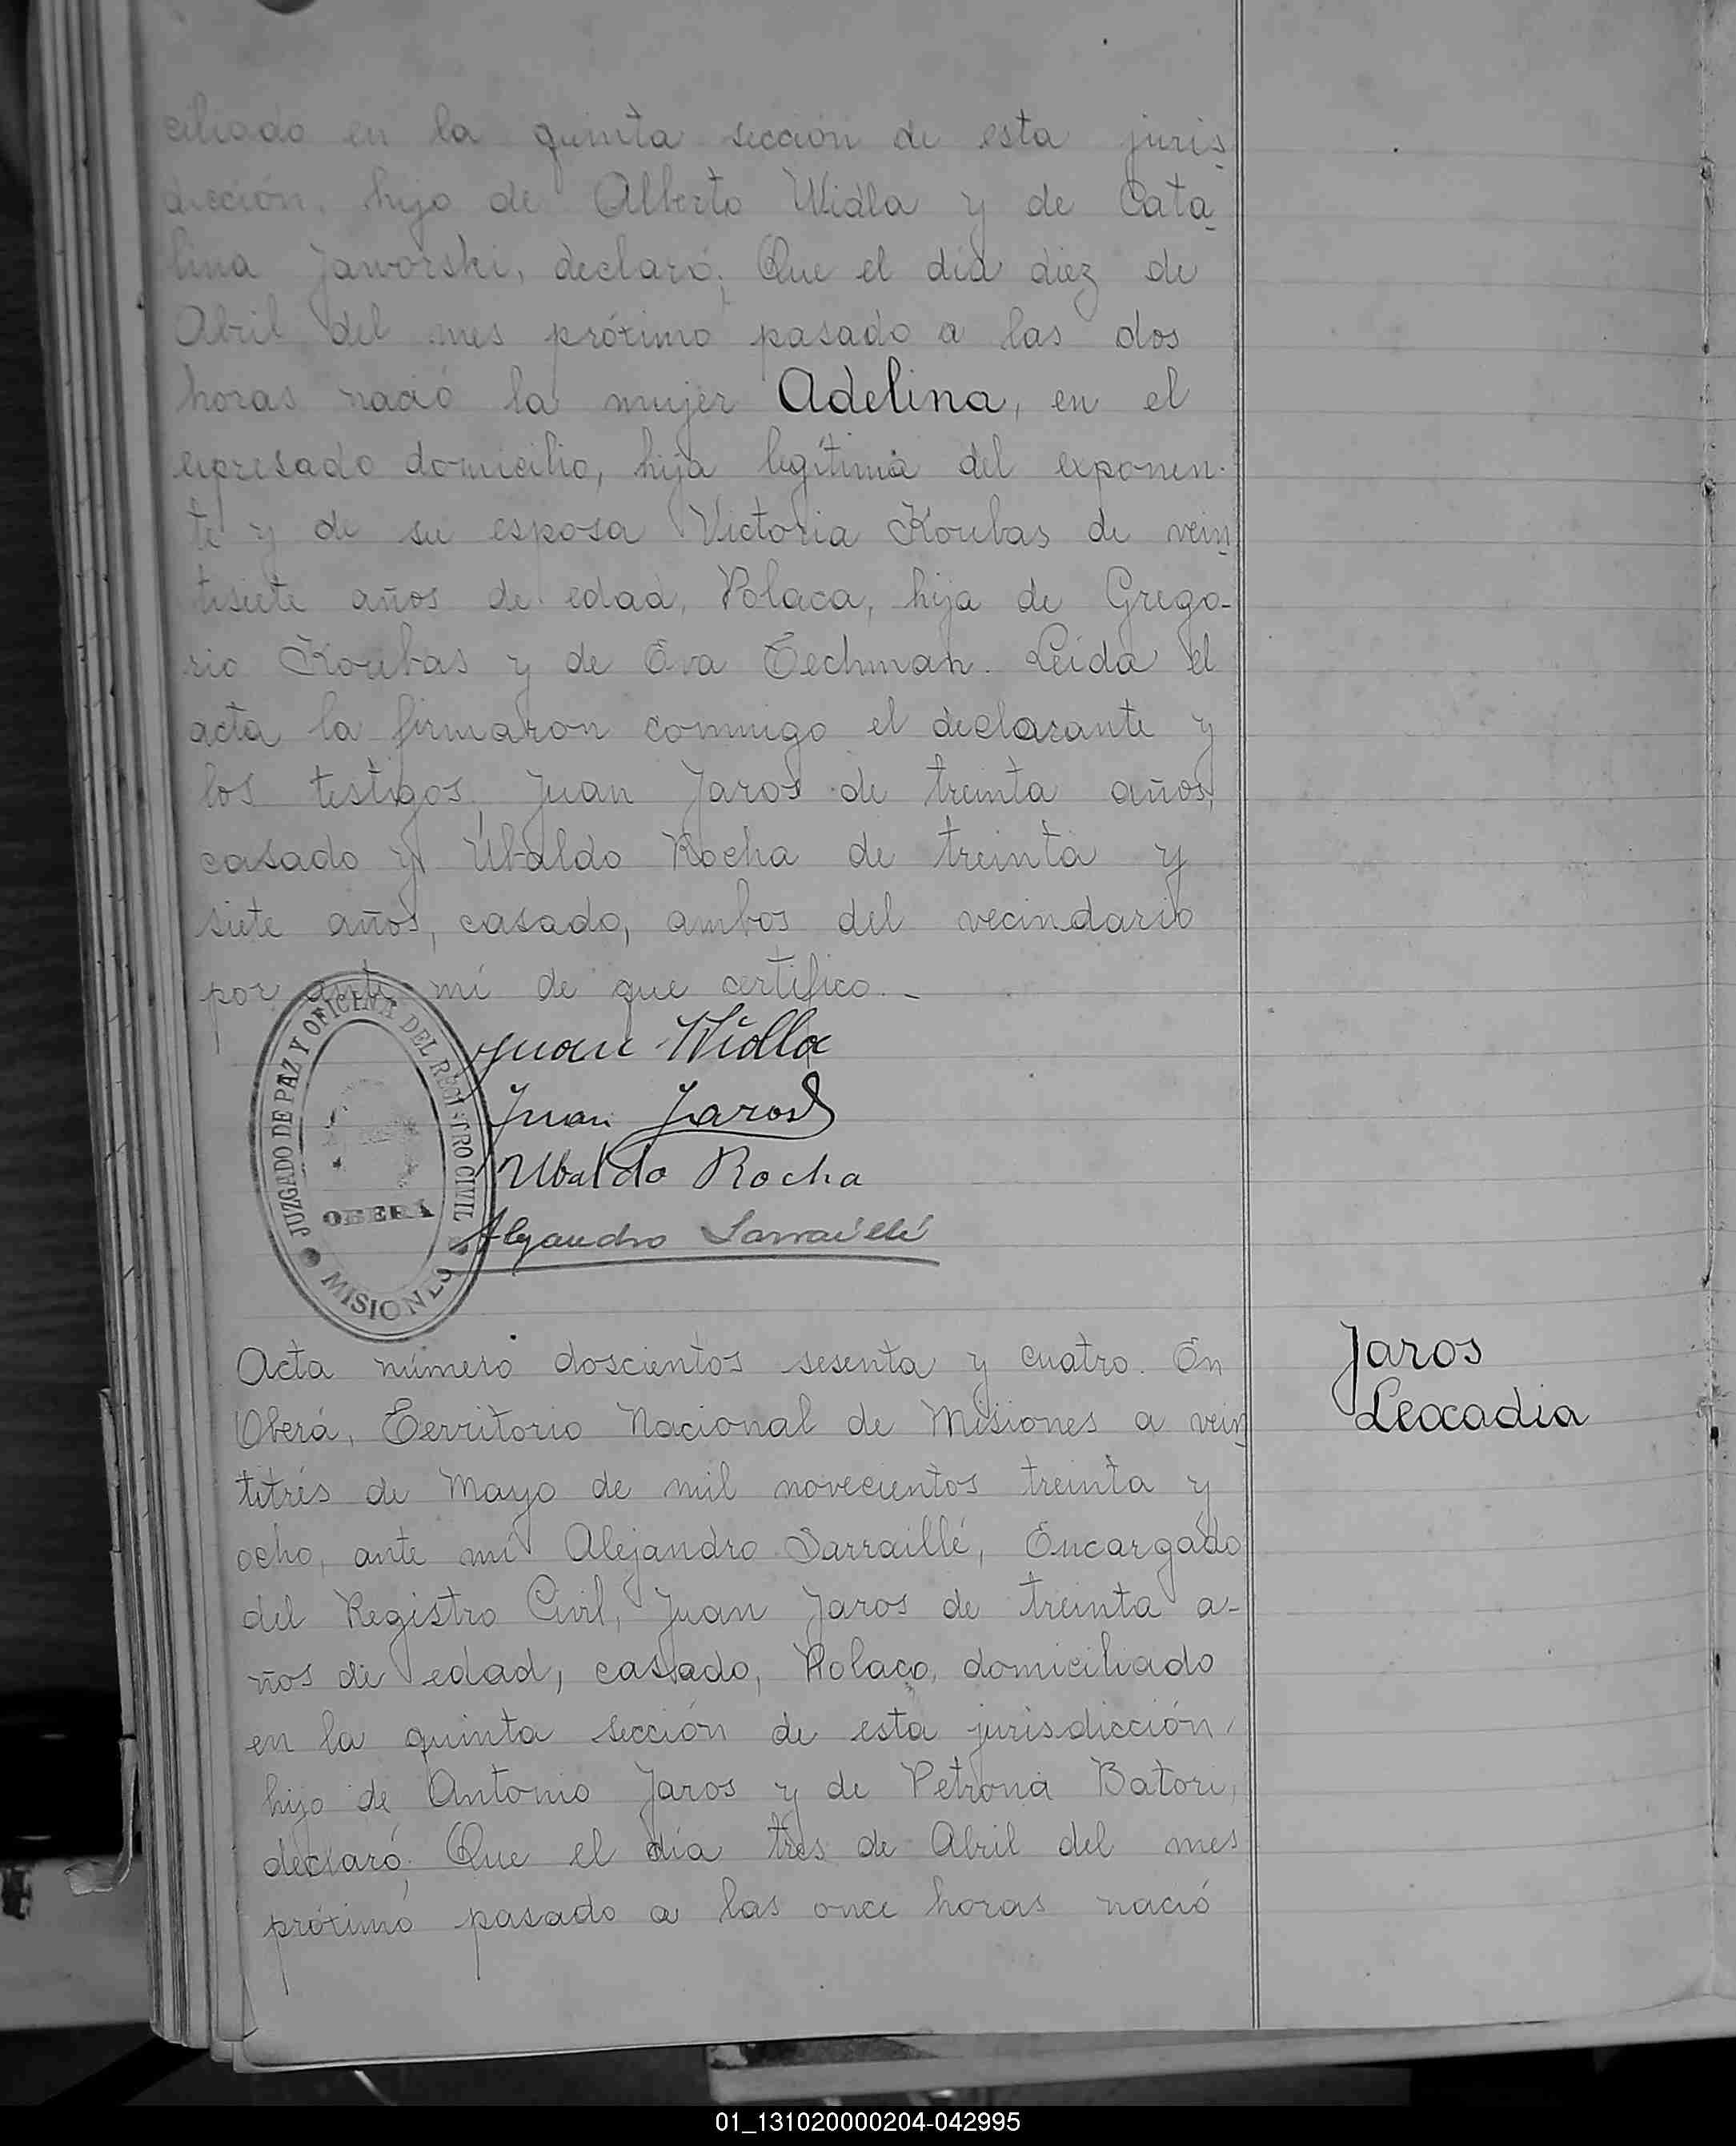 ciliado en la quinta sección de esta juris-
dicción, hijo de Alberto Widla y de Cata-
lina Jaworski, declaró; Que el día diez de
Abril del mes próximo pasado a las dos
horas nació la mujer Adelina, en el
expresado domicilio, hija legítima del exponen-
te y de su esposa Victoria Koubas de vein-
tisiete años de edad, Polaca, hija de Grego-
rio Koubas y de Eva Techman. Leída el
acta la firmaron conmigo el declarante y
los testigos, Juan Jaros de treinta años,
casado y Ubaldo Rocha de treinta y
siete años, casado, ambos del vecindario
por ante mí de que certifico.-
Juan Widla
Juan Jaros
Ubaldo Rocha
Alejandro Sarraillé
JUZGADO DE PAZ Y OFICINA DEL REGISTRO CIVIL
OBERÁ
MISIONES
Acta número doscientos sesenta y cuatro. En
Oberá, Territorio Nacional de Misiones a vein-
titrés de Mayo de mil novecientos treinta y
ocho, ante mí Alejandro Sarraillé, Encargado
del Registro Civil, Juan Jaros de treinta a-
ños de edad, casado, Polaco, domiciliado
en la quinta sección de esta jurisdicción,
hijo de Antonio Jaros y de Petrona Batori,
declaró; Que el día tres de Abril del mes
próximo pasado a las once horas nació
Jaros
Leocadia
01_131020000204-042995